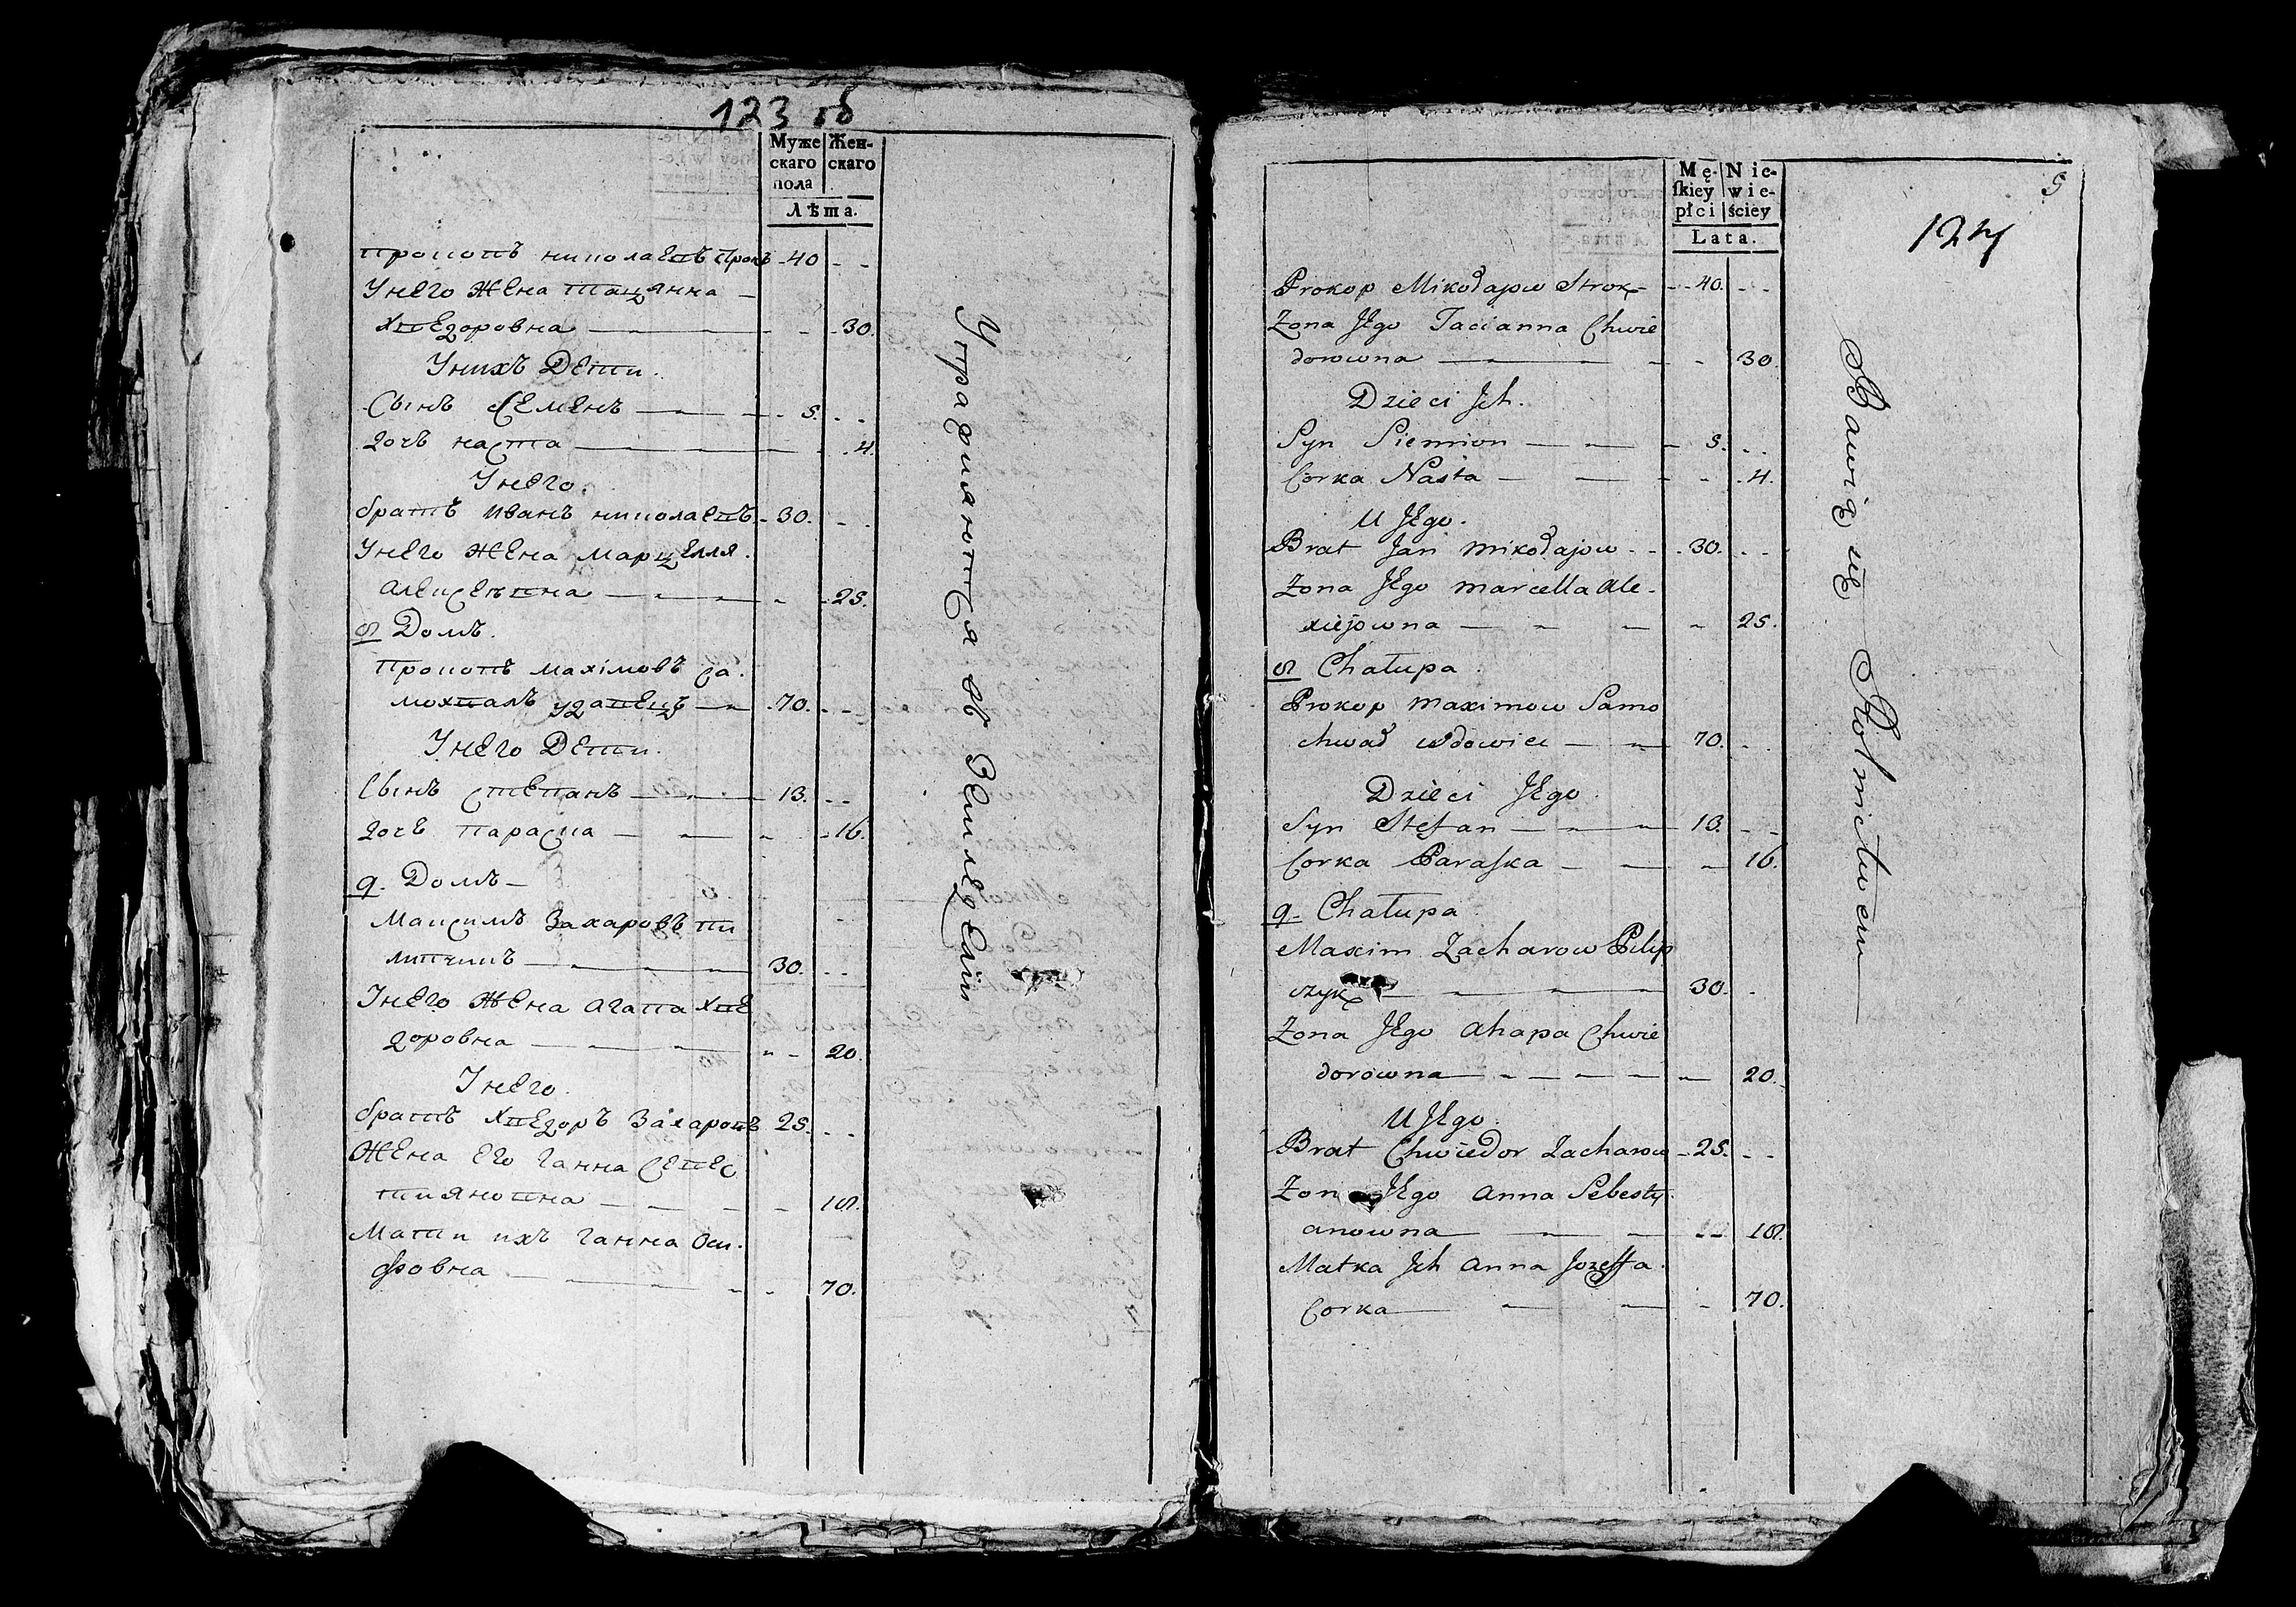 123 об
Муже Жен-
скаго скаго
пола
Лѣта.
Прокопъ николаевъ Строкъ 40
Унего Жена тацянна
Хведоровна 30.
Унихъ Дети.
Сынъ Семенъ 5.
дочъ наста 4.
Унего.
братъ иванъ николаевъ 30.
Унего Жена марцелля.
алексеевна 25.
8 Домъ.
прокопъ махімовъ са.
мохвалъ удавецъ 70.
Унего Дети.
Сынъ степанъ 13.
дочъ параска 16.
9. Домъ
Максимъ Захаровъ пи
липчикъ 30.
Унего Жена агапа хве
доровна 20.
Унего.
братъ хведоръ Захаровъ 25.
Жена его ганна Севес
тияновна 18.
Мати ихъ ганна Оси.
фовна 70.
Упражняются въ Земледелии
Mę- Nie-
skiey wie-
płci ściey
Lata.
5
124
Prokop Mikołajow Strok 40.
Zona Jego Tacianna Chwie
dorowna 30.
Dzieci Jch.
Syn Siemion 5.
Corka Nasta 4.
U Jego.
Brat Jan Mikołajow 30.
Zona Jego Marcella Ale.
xiejowna 25.
8 Chałupa.
Prokop Maximow Samo
chwał wdowiec 70.
Dzieci Jego.
Syn Stefan 13.
Corka Paraska 16.
9. Chałupa
Maxim Zacharow Pilip
czyk 30.
Zona Jego Ahapa Chwie
dorowna 20.
U Jego.
Brat Chwiedor Zacharow 25.
Zona Jego Anna Sebesty.
anowna 18.
Matka Jch Anna Jozeffa.
Corka 70.
Bawią się Rolnictwem